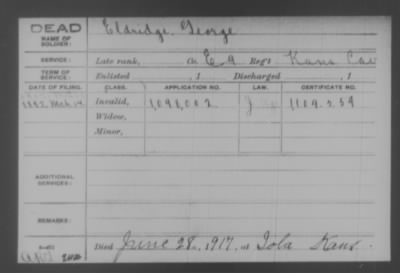 DEAD
NAME OF SOLDIER: Eldridge, George
SERVICE: Late rank, Co. E, 9 Reg't Kans Cav
TERM OF SERVICE: Enlisted , 1 Discharged , 1
DATE OF FILING. CLASS. APPLICATION NO. LAW. CERTIFICATE NO.
1892 Mch 14 Invalid, 1,098,002 1109259
Widow,
Minor,
ADDITIONAL SERVICES:
REMARKS:
Died June 28, 1917, at Iola Kans.